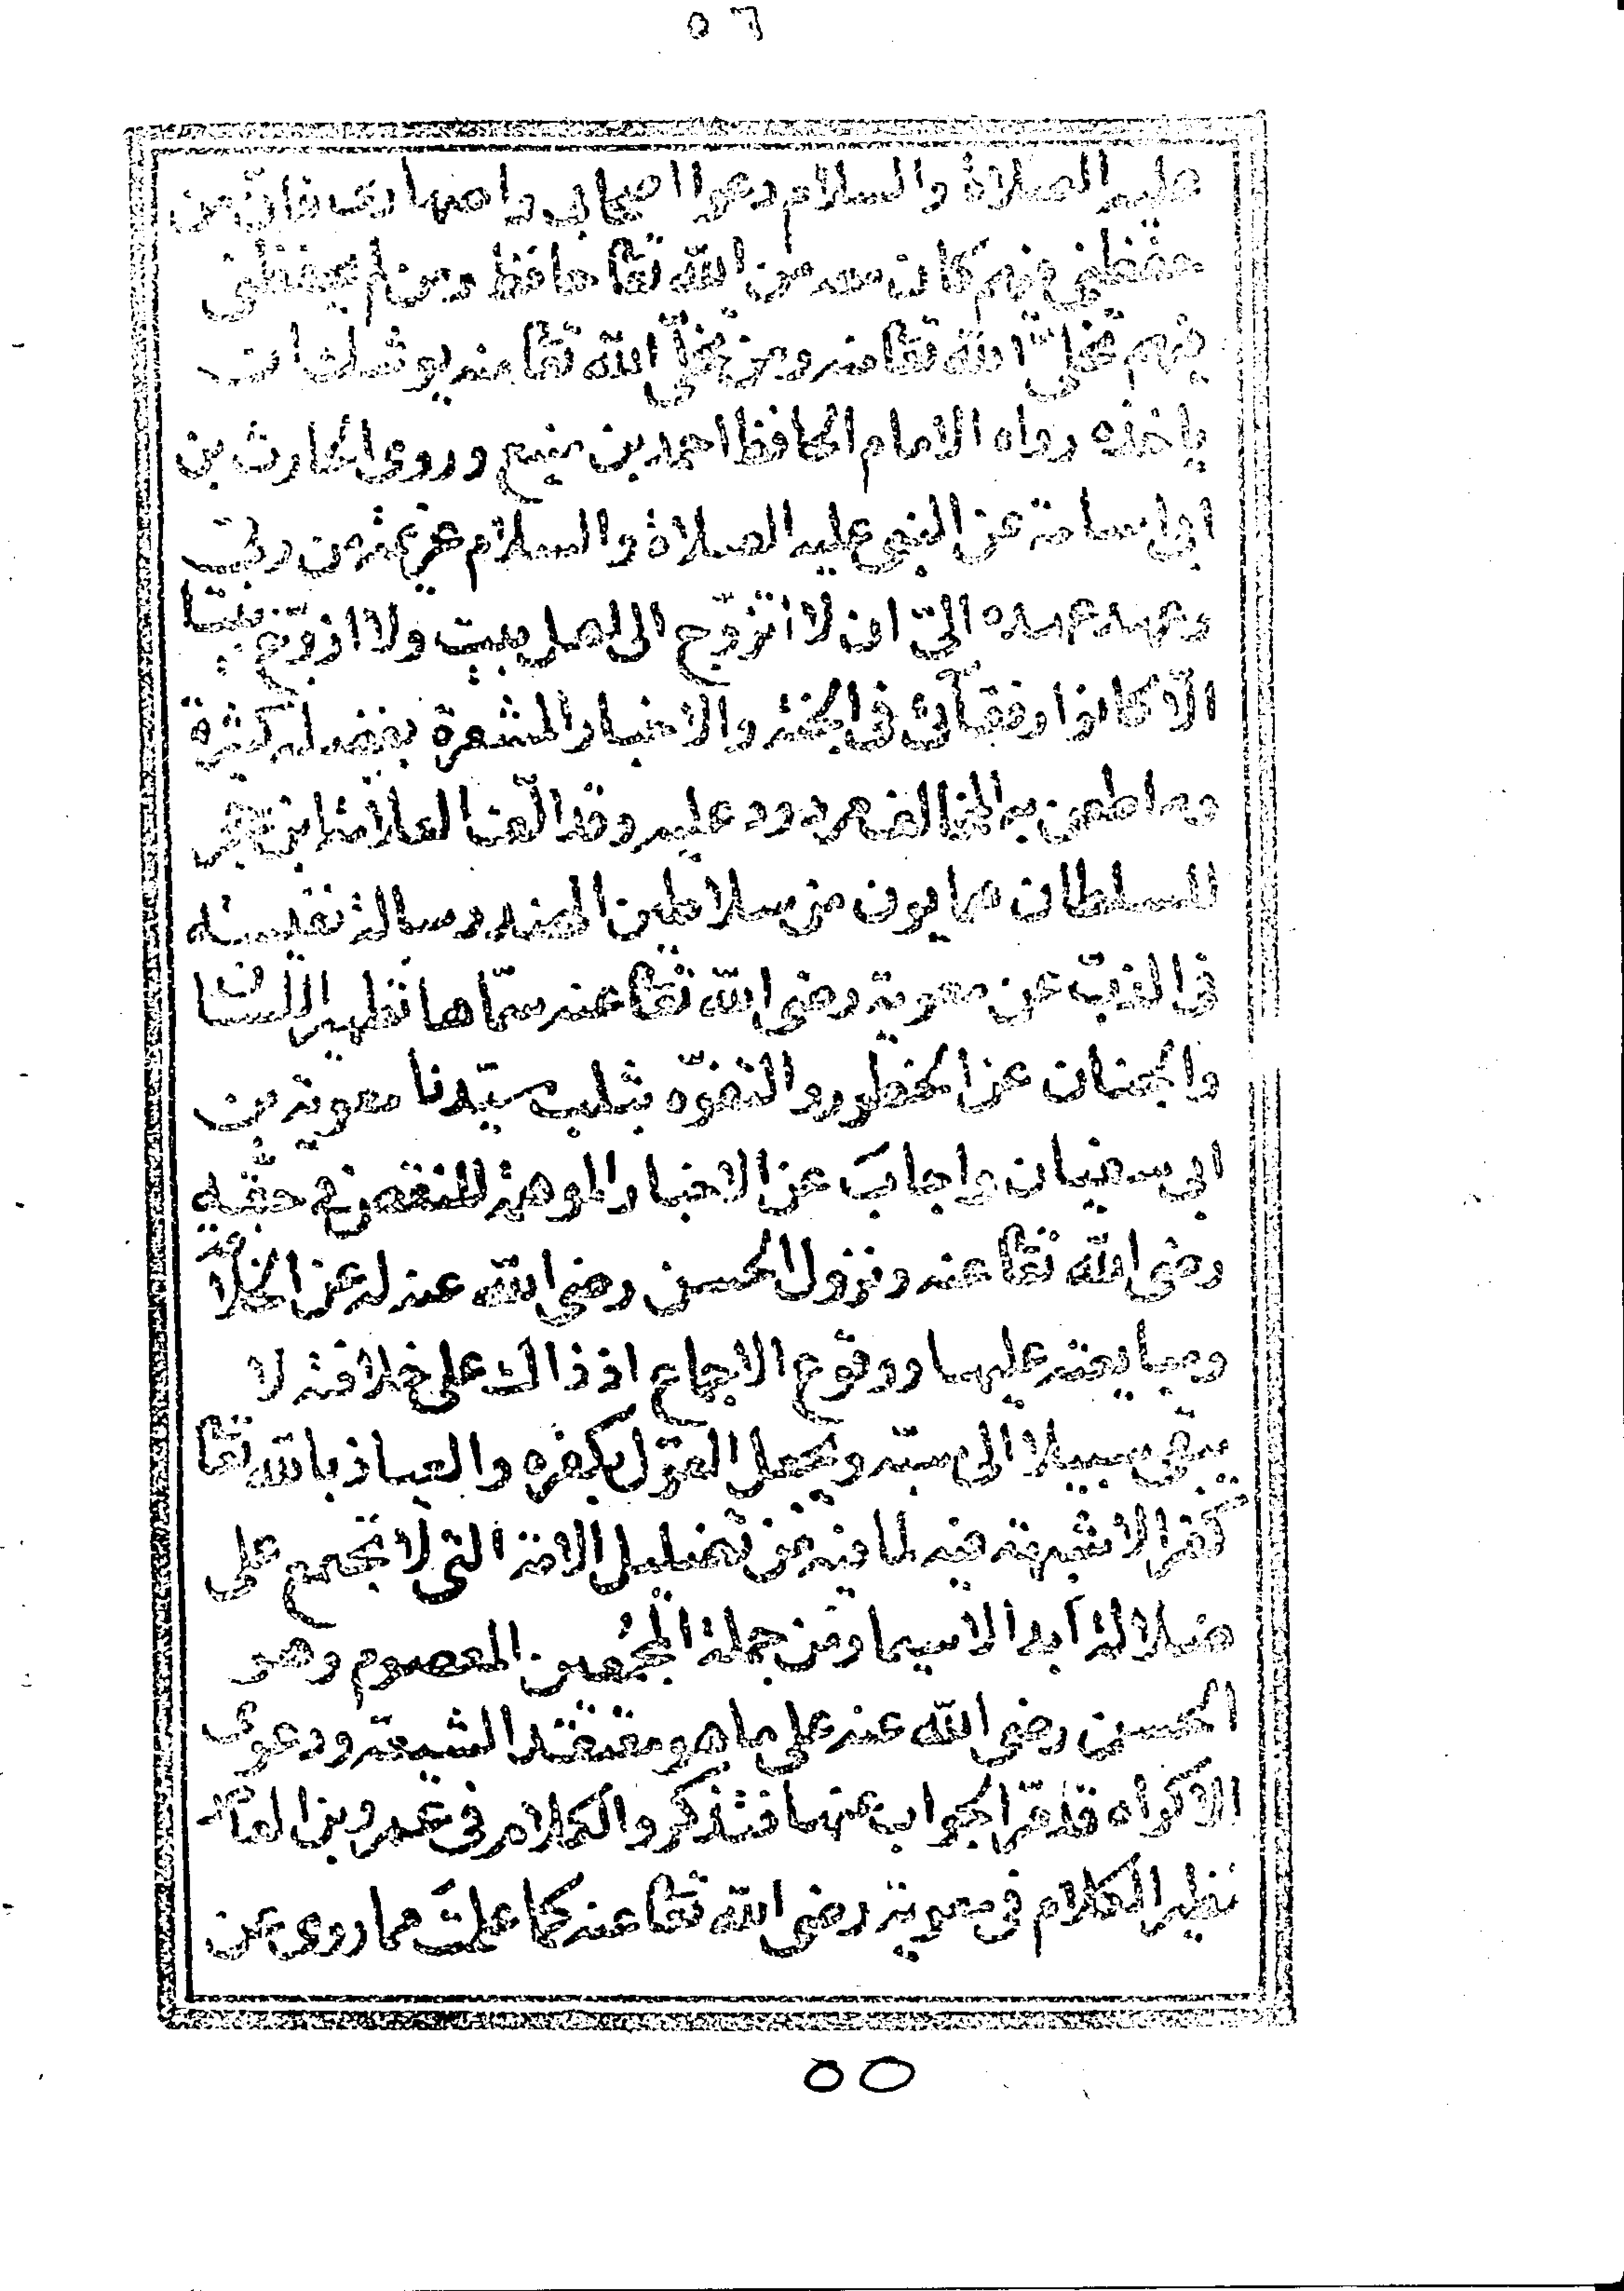 ٥٦
عليه الصلاة والسلام دعوا اصحابى واصهارى فان من
حفظنى فيهم كان معه من الله تعا حافظ ومن لم يحفظنى
فيهم تخلى الله تعا منه ومن تخلى الله تعا منه يوشك ان
ياخذه رواه الامام الحافظ احمد بن منيع وروى الحارث بن
ابى اسامة عن النبى عليه الصلاة والسلام عزيمة من ربى
وعهد عهده الىّ ان لا اتزوّج الى اهل بيت ولا ازوّج بنتا
الّا كانوا رفقائى فى الجنة والاخبار المشعرة بفضله كثيرة
وما طعن به المخالف مردود عليه وقد الّف العلامة ابن حجر
للسلطان همايون من سلاطين الهند رسالة نفيسة
فى الذبّ عن معوية رضى الله تعا عنه سمّاها تطهير اللسان
والجنان عن الخطور والتفوّه بثلب سيّدنا معوية بن
ابى سفيان واجابَ عن الاخبار الموهمة للنقص فى حقه
رضى الله تعا عنه ونزول الحسن رضى الله عنه له عن الخلافة
ومبايعته عليها ووقوع الاجماع اذ ذاك على خلافته لا
يبقى سبيلا الى سبّه ويجعل القول بكفره والعياذ بالله تعا
كفرا لا شبهة فيه لما فيه من تضليل الامة التى لا تجتمع على
ضلالة ابدا لا سيما ومن جملة المجُمعين المعصوم وهو
الحسن رضى الله عنه على ما هو معتقد الشيعة ودعوى
الاكراه قد مرّ الجواب عنها فتذكر والكلام فى عمرو بن العاص
نظير الكلام فى معوية رضى الله تعا عنه كما علمتَ مما روى عن
٥٥